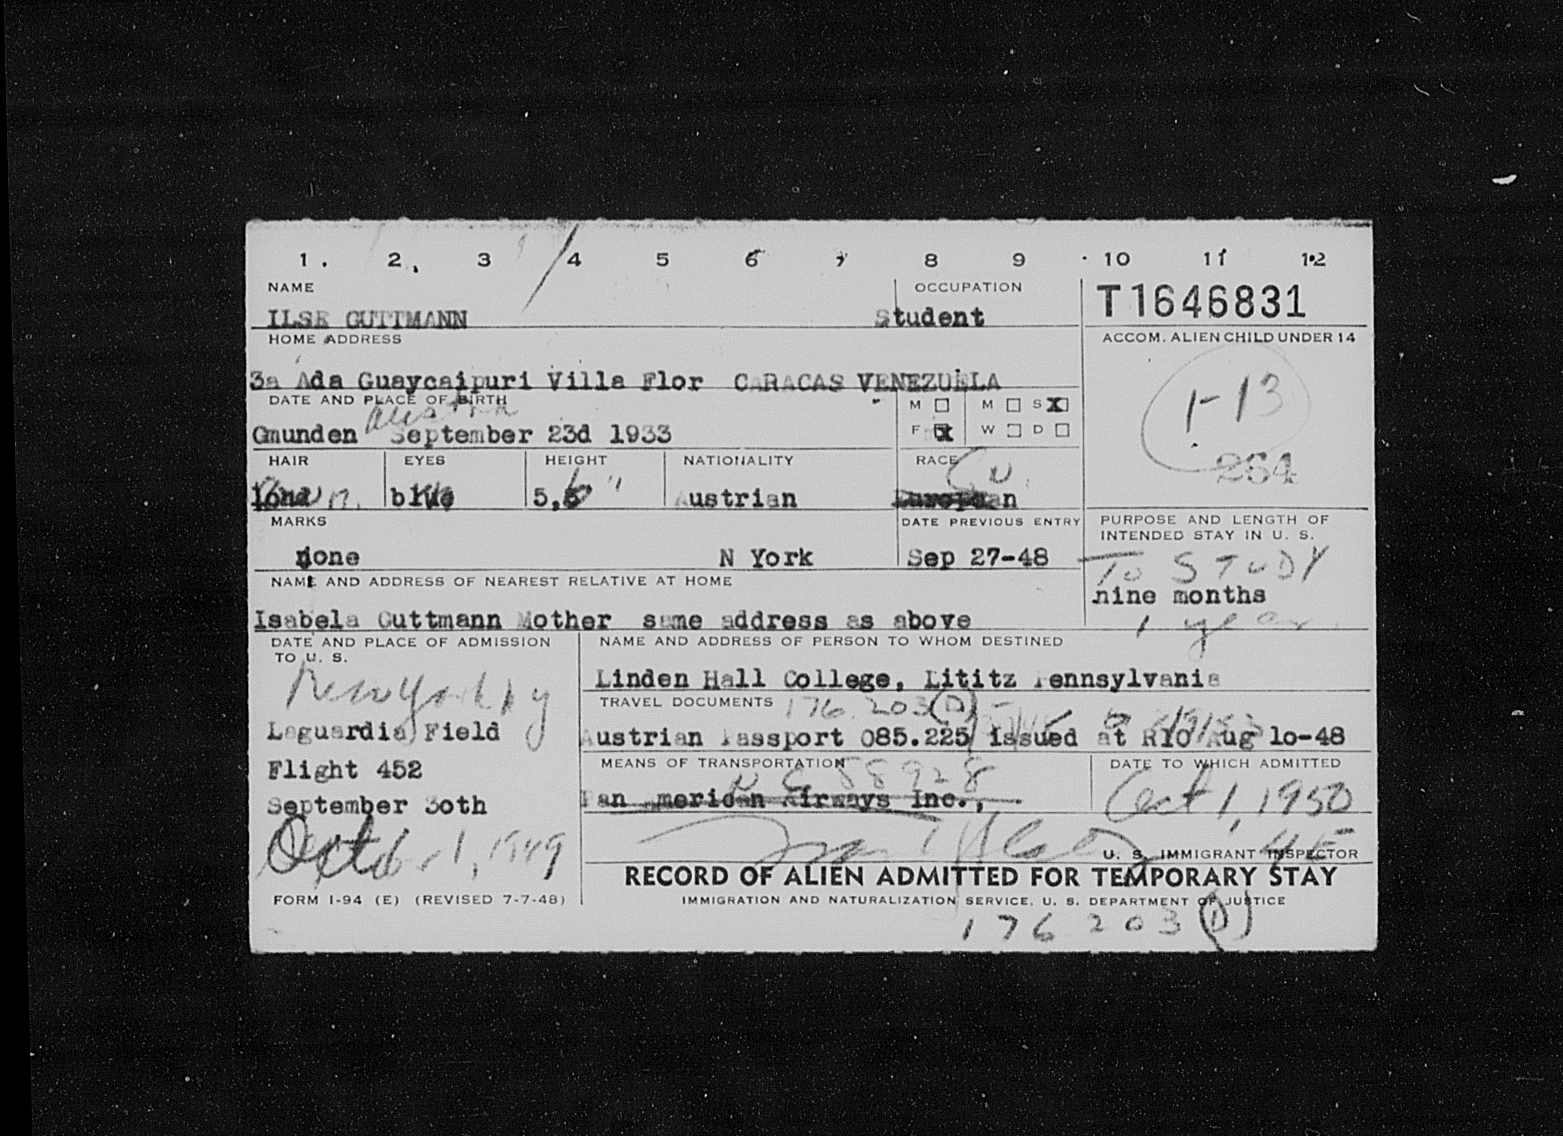 1 . 2 , 3 4 5 6 7 8 9 10 11 12
NAME OCCUPATION
ILSE GUTTMANN Student T1646831
HOME ADDRESS ACCOM. ALIEN CHILD UNDER 14
3a Ada Guaycaipuri Villa Flor CARACAS VENEZUELA
DATE AND PLACE OF BIRTH M M S X
1-13
Austria
Gmunden September 23d 1933 F X W D
HAIR EYES HEIGHT NATIONALITY RACE
264
blue 5,6" Austrian
MARKS DATE PREVIOUS ENTRY PURPOSE AND LENGTH OF
INTENDED STAY IN U. S.
none N York Sep 27-48 TO STUDY
NAME AND ADDRESS OF NEAREST RELATIVE AT HOME
nine months
Isabela Guttmann Mother same address as above 1 year
DATE AND PLACE OF ADMISSION NAME AND ADDRESS OF PERSON TO WHOM DESTINED
TO U. S.
New York NY Linden Hall College, Lititz Pennsylvania
TRAVEL DOCUMENTS 176 203 (D)
Laguardia Field Austrian Passport 085.225 issued at RIO Aug 10-48
MEANS OF TRANSPORTATION DATE TO WHICH ADMITTED
Flight 452 N C 58928 Oct 1, 1950
September 30th Pan American Airways Inc.,
October 1, 1949
U. S. IMMIGRANT INSPECTOR
RECORD OF ALIEN ADMITTED FOR TEMPORARY STAY
FORM I-94 (E) (REVISED 7-7-48) IMMIGRATION AND NATURALIZATION SERVICE, U. S. DEPARTMENT OF JUSTICE
176 203 (D)